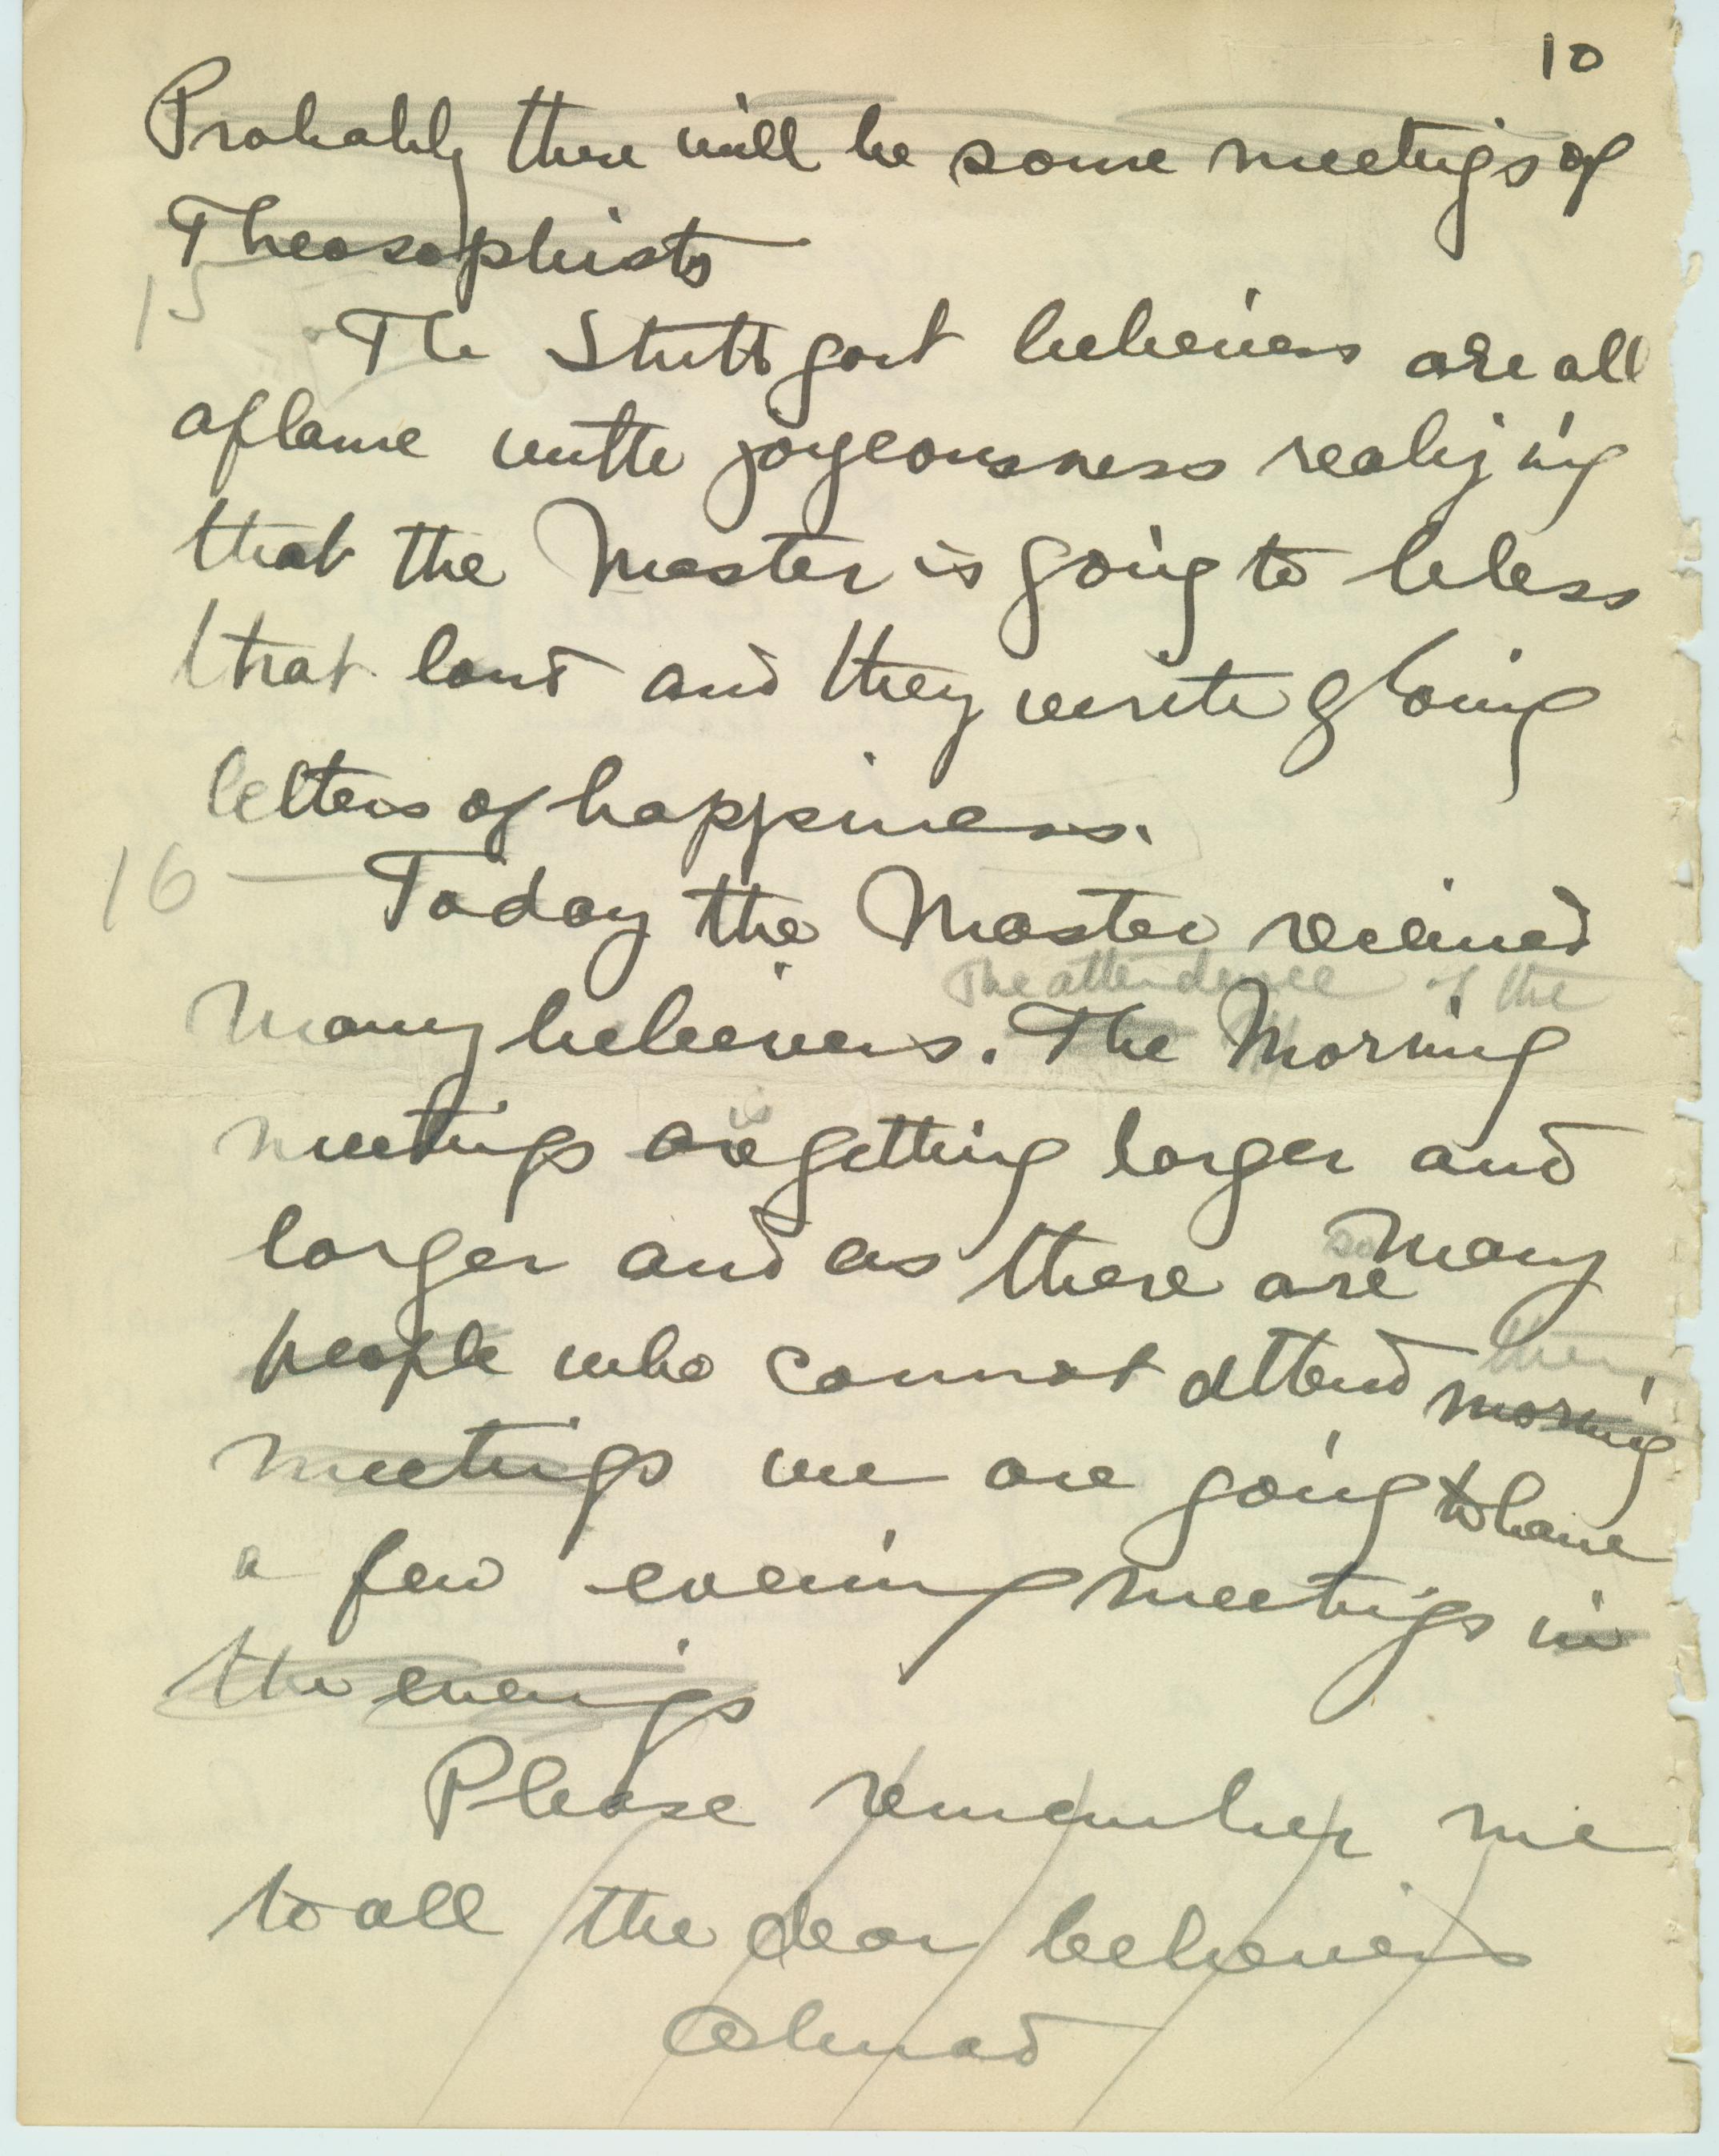 10
Probably there will be some meetings of
Theosophists
15
The Stuttgart believers are all
aflame with joyeousness realizing
that the Master is going to bless
that land and they write gloing
letters of happiness.
16 — Today the Master received
The attendence of the
many believers. The Morning
is
meetings are getting larger and
larger and as there are so many
people who cannot attend morning
meetings we are going to have
a few evening meetings in
the evenings
Please remember me
to all the dear believers
Ahmad